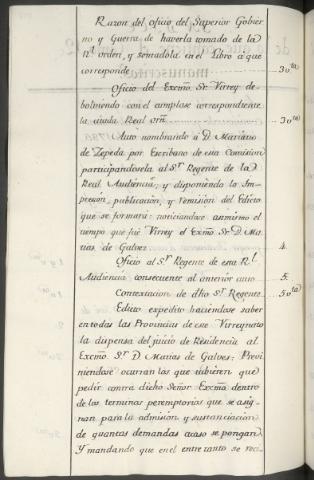 Razon del oficio del Superior Gobier
no y Guerra de haverla tomado de la
Rl. orden, y sentadola en el Libro a que
corresponde 3 vta)
Oficio del Excmo. Sr. Virrey de-
bolviendo con el cumplase correspondiente
la citada Real orn. 3 vta)
Auto nombrando á D. Mariano
de Zepeda por Escribano de esta Comision
participandosela al Sr. Regente de la
Real Audiencia; y disponiendo la Im-
presion, publicacion, y remision del Edicto
que se formará: noticiandose asimismo el
tiempo que fué Virrey el Excmo. Sr. D. Ma-
tias de Galvez 4.
Oficio al Sr. Regente de esta Rl.
Audiencia consecuente al anterior auto 5.
Contextacion de dho Sr. Regente 5 vta)
Edicto expedito haciendose saber
en todas las Provincias de este Virreynato
la dispensa del juicio de Residencia al
Excmo. Sr. D. Matias de Galvez: Previ
niendose ocurran los que tubieren que
pedir contra dicho Señor Excmo. dentro
de los terminos peremptorios que se asig-
nan para la admision, y sustanciacion
de quantas demandas acaso se pongan
Y mandando que en el entretanto se reci